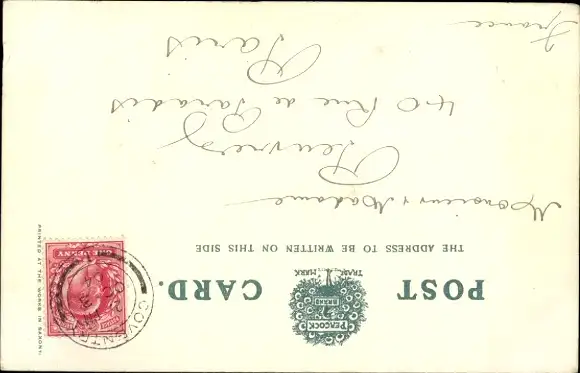 POST CARD.
PEACOCK
BRAND
TRADE MARK
THE ADDRESS TO BE WRITTEN ON THIS SIDE
Monsieur & Madame
40 Rue de Paradis
Paris
France
ONE PENNY
COVENTRY
PRINTED AT THE WORKS IN SAXONY.